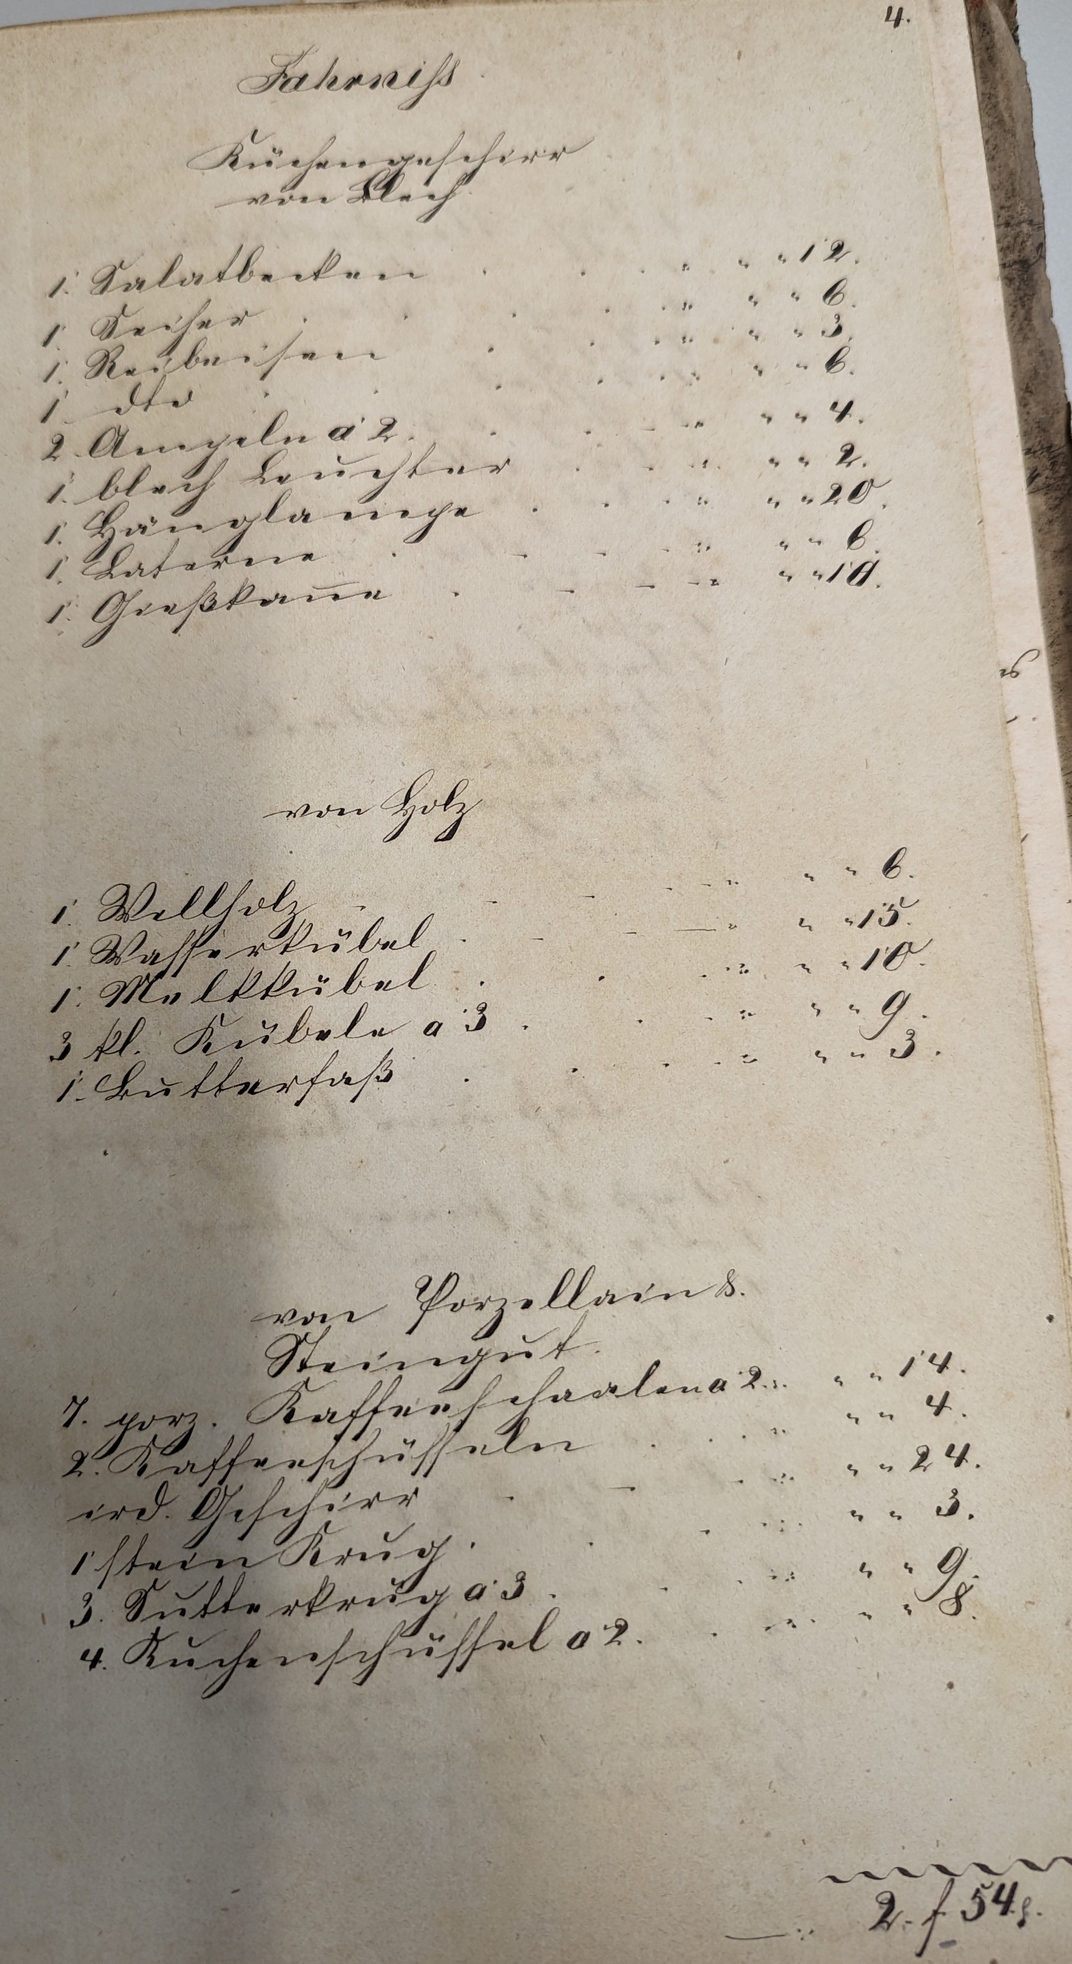 4.
Fahrniß
Küchengeschirr
von Blech
1. Salatbecken . . . " " " 12.
1. Seiher . . . . " " " 6.
1. Reibeisen . . . " " " 3.
1. dto . . . . " " " 6.
2 Ampeln a 2. . . . " " " 4.
1. blech Leuchter . . . " " " 2.
1. Hänglampe . . . " " " 20.
1. Laterne . . . . " " " 6.
1. Gießkan̅e . . . " " " 10.
von Holz
1. Wellholz . . . . " " " 6.
1. Wasserkübel . . . " " " 15.
1. Melkkübel . . . " " " 10.
3 kl. Kübele a 3 . . . " " " 9.
1. Butterfaß . . . . " " " 3.
von Porzellain &.
Steingut.
7. porz. Kaffeeschaalen a 2. " " " 14.
2. Kaffeeschüsseln . . . " " " 4.
ird. Geschirr . . . " " " 24.
1 stein Krug . . . " " " 3.
3. Sutterkrüg a 3 . . . " " " 9.
4. Kuchenschüssel a 2. . . " " " 8.
2. f 54